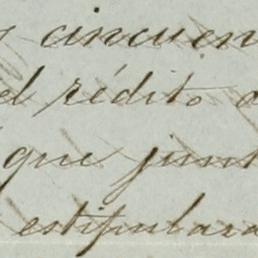 y cincuen
el rédito
que junt
estipulara